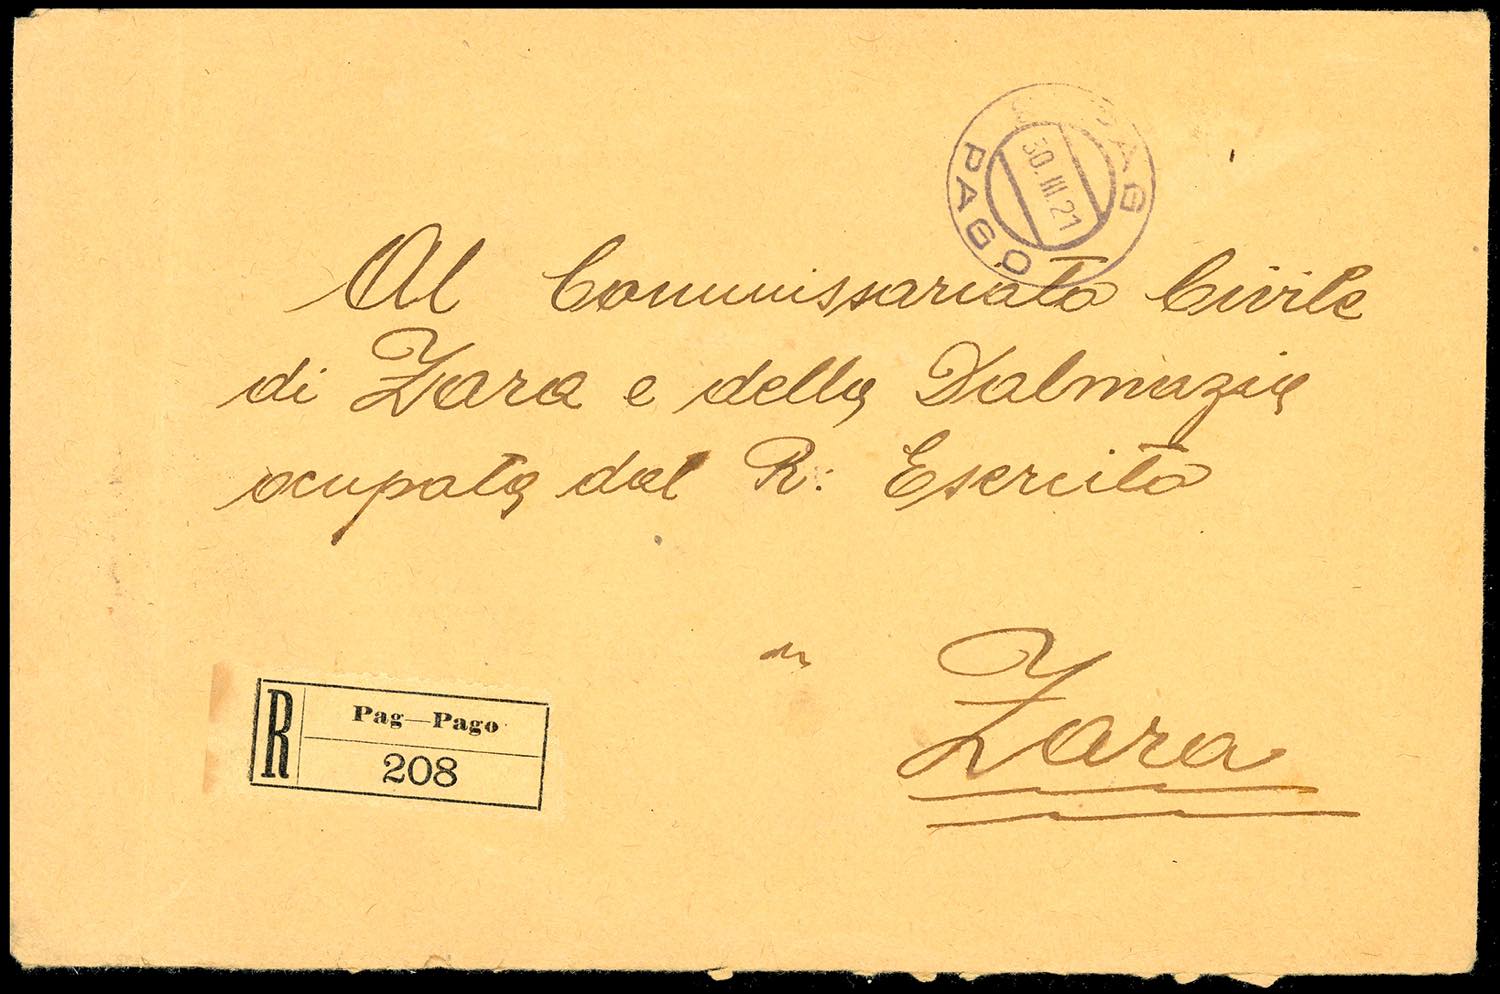 PAG
PAGO
30.III.21
Al Commissariato Civile
di Zara e della Dalmazia
ocupata dal R. Esercito
in
Zara
R
Pag—Pago
208